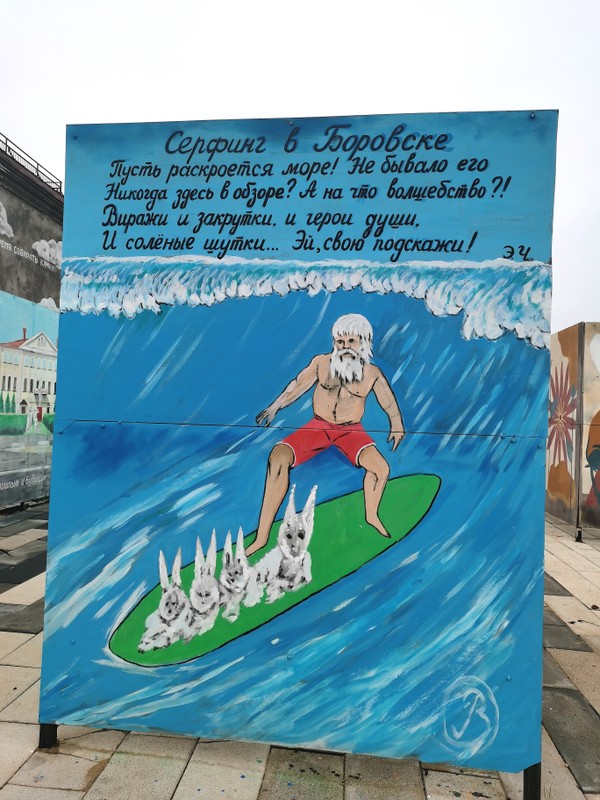 Серфинг в Боровске
Пусть раскроется море! Не бывало его
Никогда здесь в обзоре? А на что волшебство?!
Виражи и закрутки, и герои души,
И солёные шутки... Эй, свою подскажи!
Э.Ч.